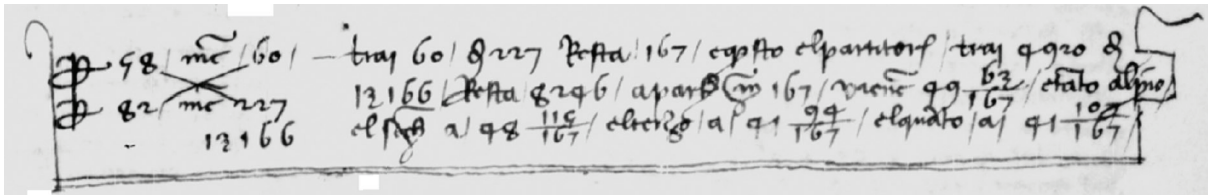 p 58 / mc̄ / 60 / — trai 60 / d 227 Resta / 167 / eqsto elpartitor / trai 4920 d
p 82 / mc̄ 227 13166 / Resta 8246 / a partir in 167 / vienē 49 63/167 / etāto alpīo
13166 el secō a 48 115/167 / elterzo / a / 41 94/167 / elquarto / a / 41 104/167